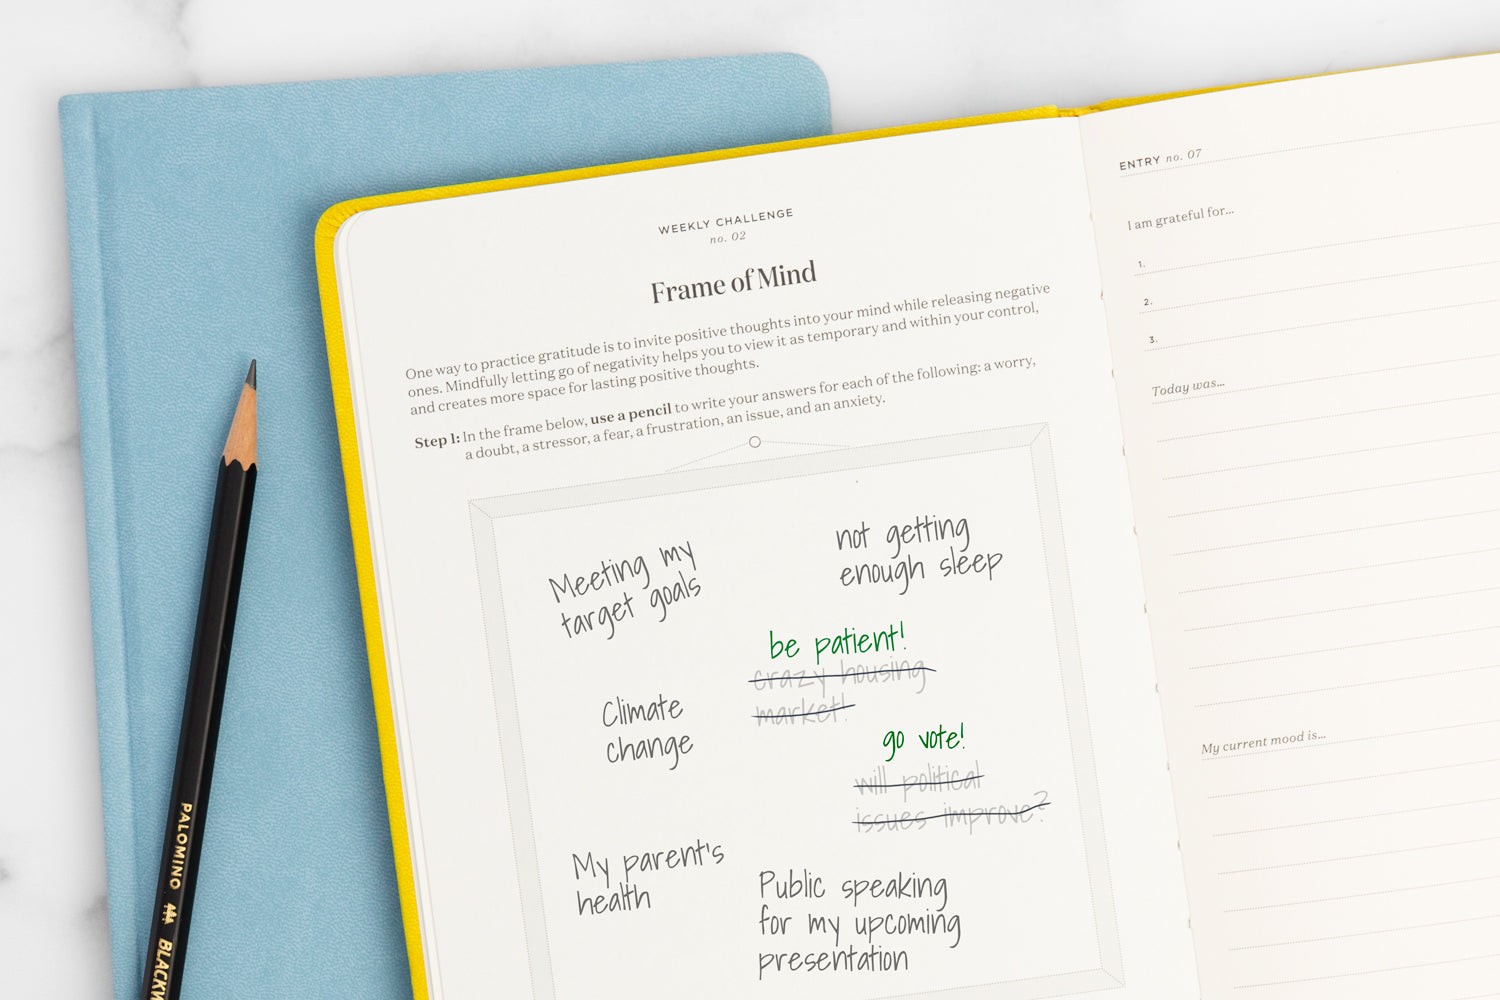 WEEKLY CHALLENGE
no. 02
Frame of Mind
One way to practice gratitude is to invite positive thoughts into your mind while releasing negative
ones. Mindfully letting go of negativity helps you to view it as temporary and within your control,
and creates more space for lasting positive thoughts.
Step 1: In the frame below, use a pencil to write your answers for each of the following: a worry,
a doubt, a stressor, a fear, a frustration, an issue, and an anxiety.
Meeting my
target goals
not getting
enough sleep
be patient!
crazy housing
market!
Climate
change
go vote!
will political
issues improve?
My parent's
health
Public speaking
for my upcoming
presentation
ENTRY no. 07
I am grateful for...
1.
2.
3.
Today was...
My current mood is...
PALOMINO
BLACKW